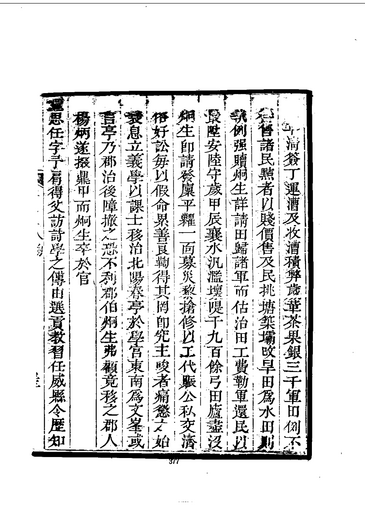 簽丁運漕及收漕積弊裁革茶果銀三千軍田例不
售諸民黠者以賤價售及民挑塘築壩改旱田為水田則
執例強贖炯生詳請田歸諸軍而估治田工費勒軍還民以
最陞安陸守歲甲辰襄水汎濫壞隄千九百餘弓田廬盡沒
炯生即請發廩平糶一面募災黎搶修以工代賑公私交濟
俗好訟每以假命累善良鞫得其罔即究主唆者痛懲之始
衰息立義學以課士移治北陽春亭於學宮東南為文峯或
言亭乃郡治後障撤之恐不利郡伯炯生弗顧竟移之郡人
楊炳遂掇鼎甲而炯生卒於官
思任字子肩得父訪詩學之傳由選貢教習任威縣令歷知
377